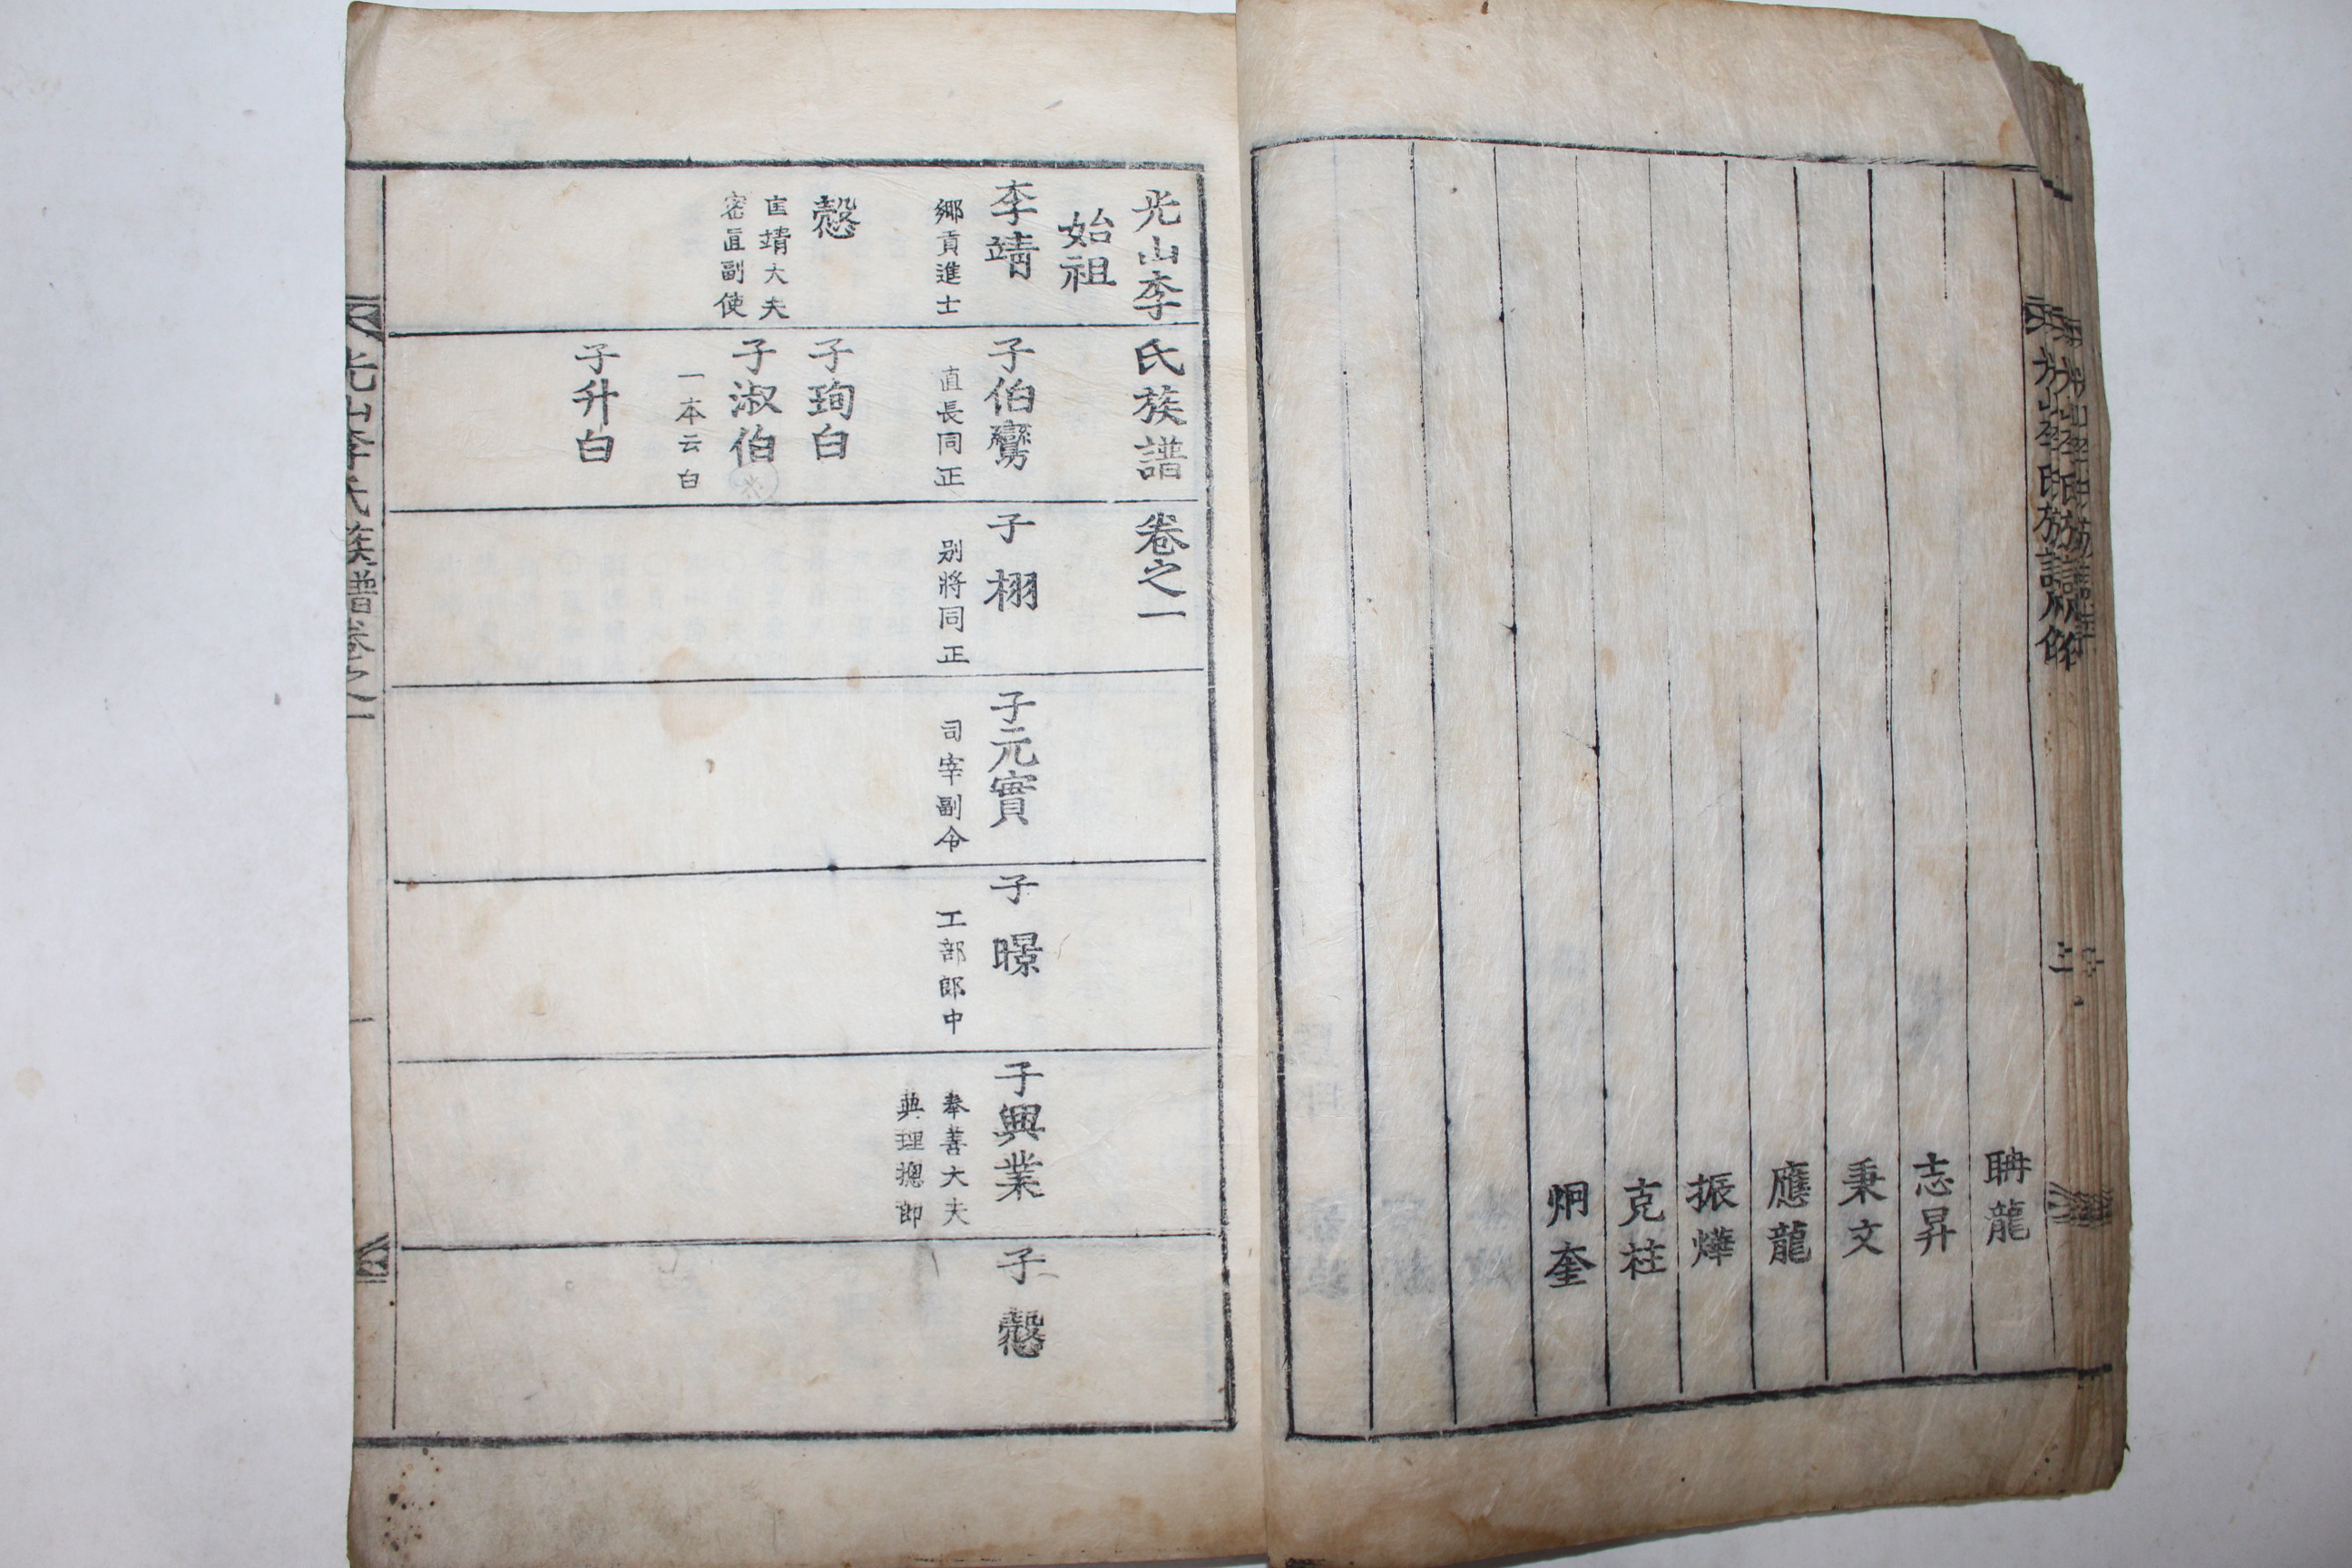 聃龍
志昇
秉文
應龍
振燁
克柱
炯奎
光山李氏族譜卷之一
始祖
李靖
鄕貢進士
子伯
直長同正
子栩
別將同正
子元實
司宰副令
子暻
工部郎中
子興業
奉善大夫
典理摠郎
子慤
慤
匡靖大夫
密直副使
子珣白
子淑伯
一本云白
子升白
光山李氏族譜卷之一
一